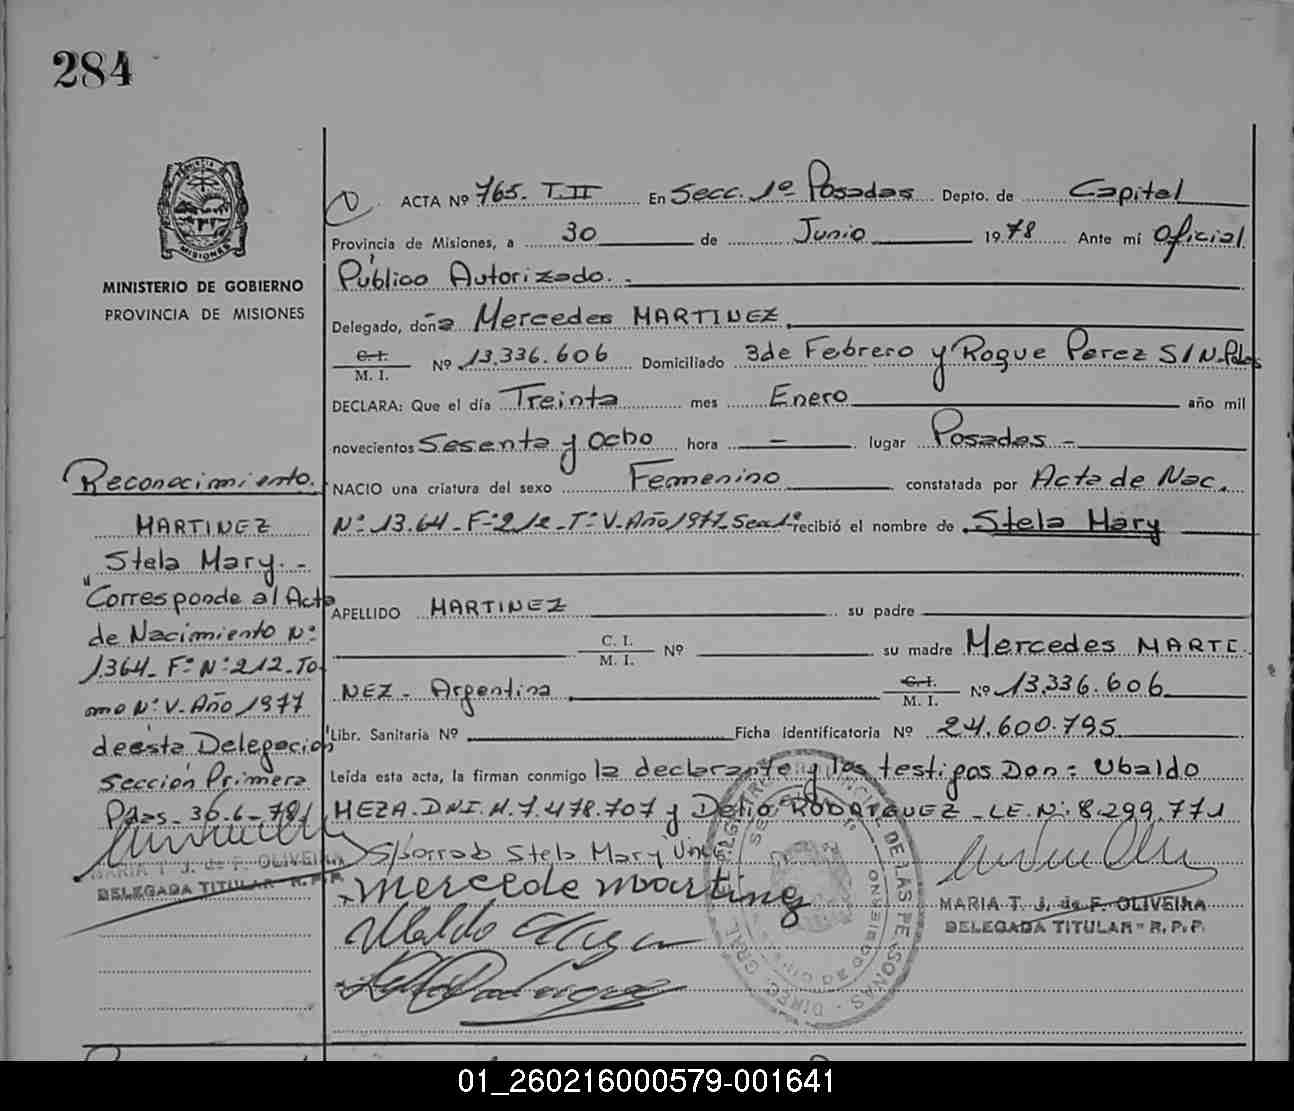 284
PROVINCIA DE
MISIONES
MINISTERIO DE GOBIERNO
PROVINCIA DE MISIONES
Reconocimiento.
MARTINEZ
Stela Mary. -
"Corresponde al Acta
de Nacimiento Nº
1.364- Fº Nº 212- To
omo Nº V. Año 1977
de esta Delegación
Sección Primera
Pdas- 30-6-78"
MARIA T. J. de F. OLIVEIRA
DELEGADA TITULAR - R.P.P.
ACTA Nº 765. T.II En Secc. 1º Posadas Depto. de Capital
Provincia de Misiones, a 30 de Junio 1978 Ante mí Oficial
Público Autorizado. -
Delegado, doña Mercedes MARTINEZ
C.I. M. I. Nº 13.336.606 Domiciliado 3 de Febrero y Roque Perez S/N-Pdas
DECLARA: Que el día Treinta mes Enero año mil
novecientos Sesenta y Ocho hora - lugar Posadas -
NACIO una criatura del sexo Femenino constatada por Acta de Nac.
Nº 13.64- Fº 212- Tº V. Año 1977 Secc 1º recibió el nombre de Stela Mary
APELLIDO MARTINEZ su padre
C. I. M. I. Nº su madre Mercedes MARTI
NEZ - Argentina C.I. M. I. Nº 13.336.606
Libr. Sanitaria Nº Ficha identificatoria Nº 24.600.795
Leída esta acta, la firman conmigo la declarante y los testigos Don: Ubaldo
MEZA. DNI. M. 7.478.707 y Delio RODRIGUEZ - LE. Nº 8.299.771
S/borrado Stela Mary
mercede martinez
MARIA T. J. de F. OLIVEIRA
DELEGADA TITULAR - R.P.P.
01_260216000579-001641